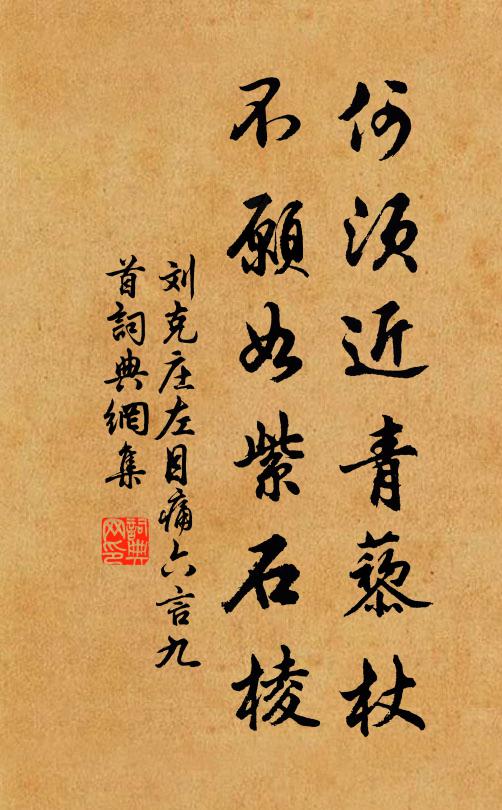 何须近青藜杖
不愿如紫石棱
刘克庄左目痛六言九
首詞典網集
詞典
网印